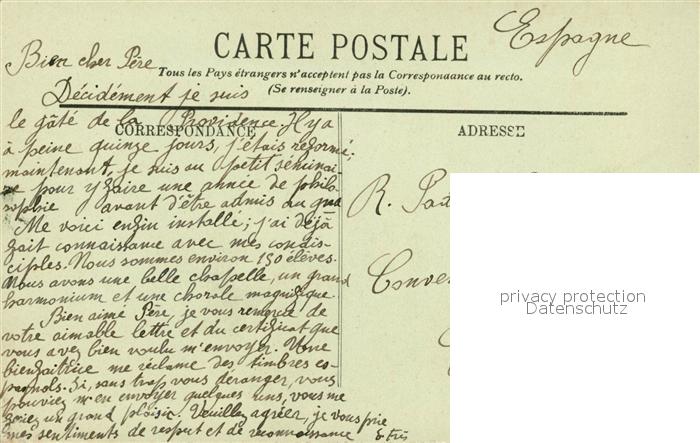 Espagne
Bien cher Père
CARTE POSTALE
Tous les Pays étrangers n'acceptent pas la Correspondance au recto.
(Se renseigner à la Poste).
Décidément je suis
le gâté de la Providence. Il y a
CORRESPONDANCE
ADRESSE
à peine quinze jours, j'étais réformé;
maintenant, je suis au petit séminai-
re pour y faire une année de philo-
sophie avant d'être admis au
Me voici enfin installé; j'ai déjà
fait connaissance avec mes condis-
ciples. Nous sommes environ 150 élèves.
Nous avons une belle chapelle, un grand
harmonium et une chorale magnifique.
Bien aimé Père, je vous remercie de
votre aimable lettre et du certificat que
vous avez bien voulu m'envoyer. Une
bienfaitrice me réclame des timbres es-
pagnols. Si, sans trop vous déranger, vous
pouviez m'en envoyer quelques uns, vous me
feriez un grand plaisir. Veuillez agréer, je vous prie
mes sentiments de respect et de reconnaissance
R.
Conve
privacy protection
Datenschutz